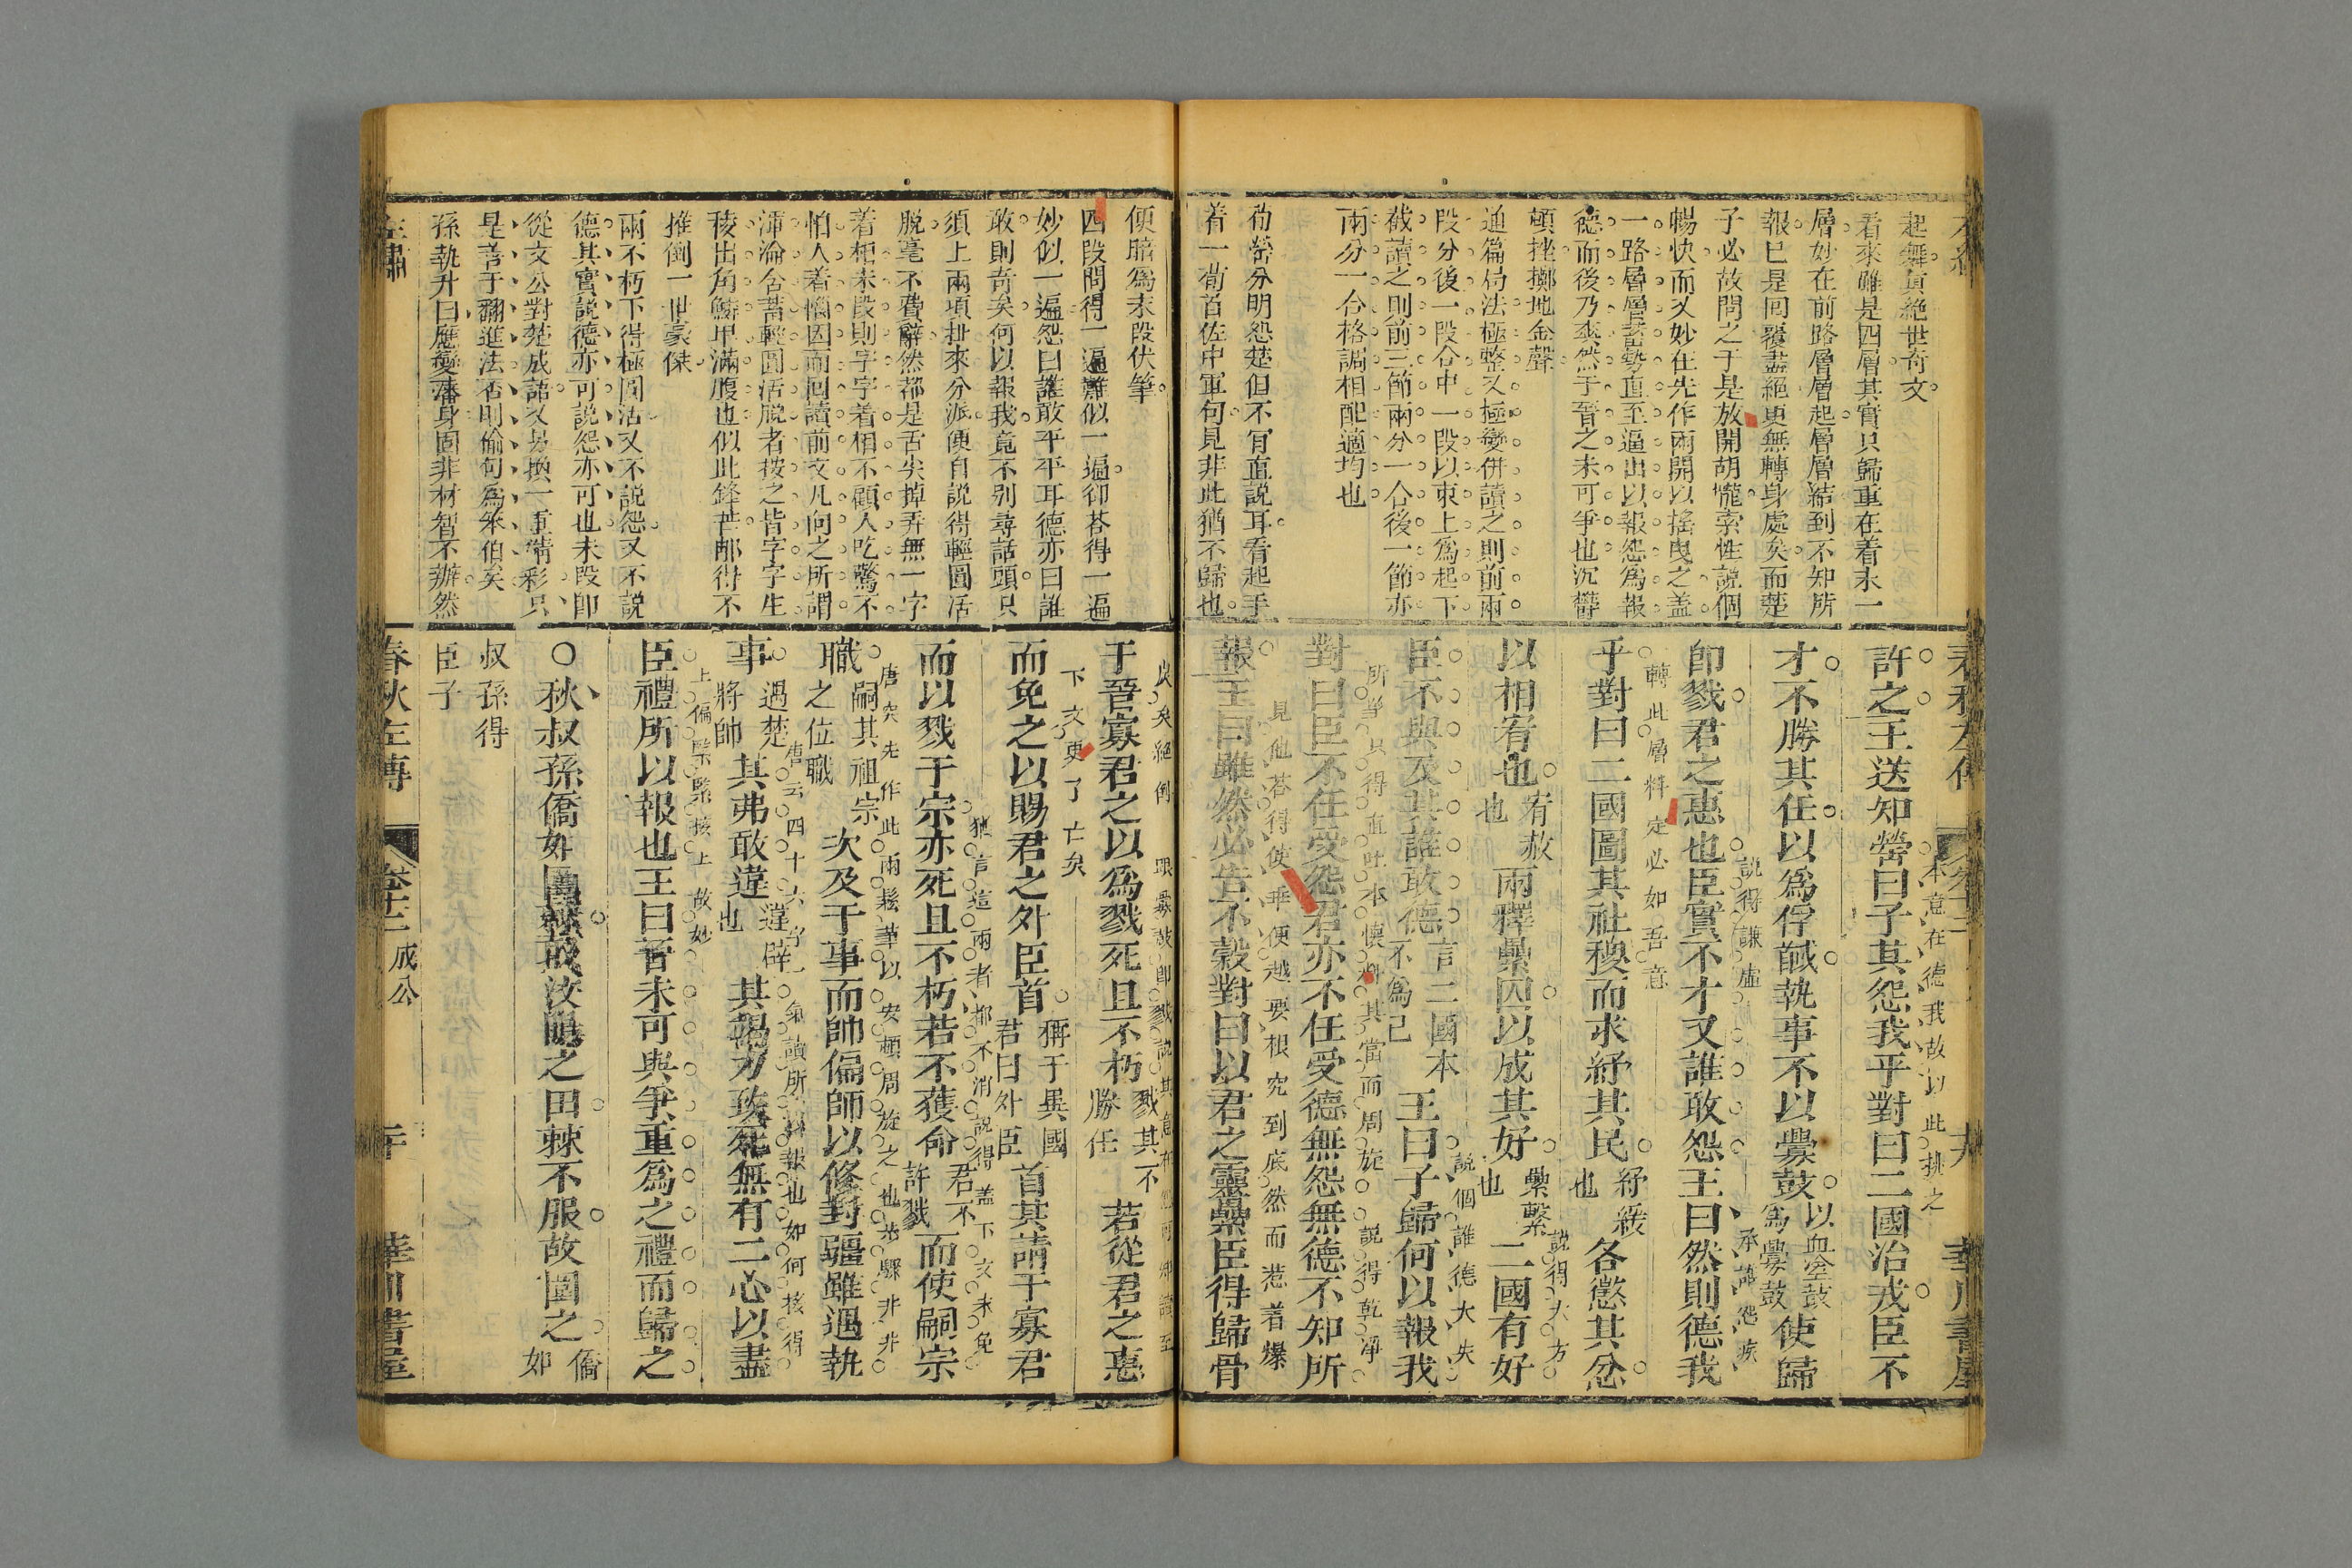 起舞真絶世奇文
看來雖是四層其實只歸重在着末一
層妙在前路層層起層層結到不知所
報已是回覆盡絕更無轉身處矣而楚
子必故問之于是放開胡嚨索性説個
暢快而又妙在先作兩開以摇曳之盖
一路層層蓄勢直至逼出以報怨為報
德而後乃爽然于晉之未可爭也沉欝
頓挫擲地金聲
通篇局法極整又極變併讀之則前兩
段分後一段合中一段以束上爲起下
截讀之則前三節兩分一合後一節亦
兩分一合格調相配適均也
荀罃分明怨楚但不肯直説耳看起手
着一荀首佐中軍句見非此猶不歸也
許之王送知罃曰子其怨我乎對曰二國治戎臣不
本意在德我故以此挑之
才不勝其任以爲俘馘執事不以釁鼓以血塗鼓爲釁鼓使歸
即戮君之惠也臣實不才又誰敢怨王曰然則德我
説得謙虛
乎對曰二國圖其社稷而求紓其民紓緩也各懲其忿
轉此層料定必如吾意
以相宥也宥赦也兩釋纍囚以成其好纍繫也二國有好
説得大方
臣不與及其誰敢德言二國本不為己王曰子歸何以報我
説個誰德大失
對曰臣不任受怨君亦不任受德無怨無德不知所
説得乾凈
報王曰雖然必告不榖對曰以君之靈纍臣得歸骨
見他荅得使乖便越要根究到底然而惹着爆
便暗爲末段伏筆
四段問得一逼難似一逼卻荅得一遍
妙似一遍怨曰誰敢平平耳德亦曰誰
敢則奇矣何以報我竟不别尋話頭只
須上兩項扯來分派便自説得輕圓活
脱毫不費辭然都是舌尖掉弄無一字
着相末段則字字着相不顧人吃驚不
怕人着惱因而回讀前文凡向之所謂
渾淪含蓄輕圓活脱者按之皆字字生
稜出角鱗甲滿腹也似此鋒芒那得不
推倒一世豪傑
兩不朽下得極圓活又不説怨又不説
德其實説德亦可説怨亦可也末段即
從文公對楚成語又另換一重精彩只
是善于翻進法否則偷句爲笨伯矣
孫執升曰應變藩身固非材智不辦然
于晉寡君之以爲戮死且不朽戮其不勝任若從君之惠
而免之以賜君之外臣首稱于異國君曰外臣首其請于寡君
下文更了亡矣
而以戮于宗亦死且不朽若不獲命君不許戮而使嗣宗
猶言這兩者都不消説得盖下文未免
職嗣其祖宗之位職次及于事而帥偏師以修封疆雖遇執
唐突先作此兩鬆筆以安頓周旋之也
事遇楚將帥其弗敢違違辟也其竭力致死無有二心以盡
臣禮所以報也王曰晉未可與爭重爲之禮而歸之
○秋叔孫僑如圍棘取汶陽之田棘不服故圍之僑如
叔孫得
臣子
春秋左傳
成公